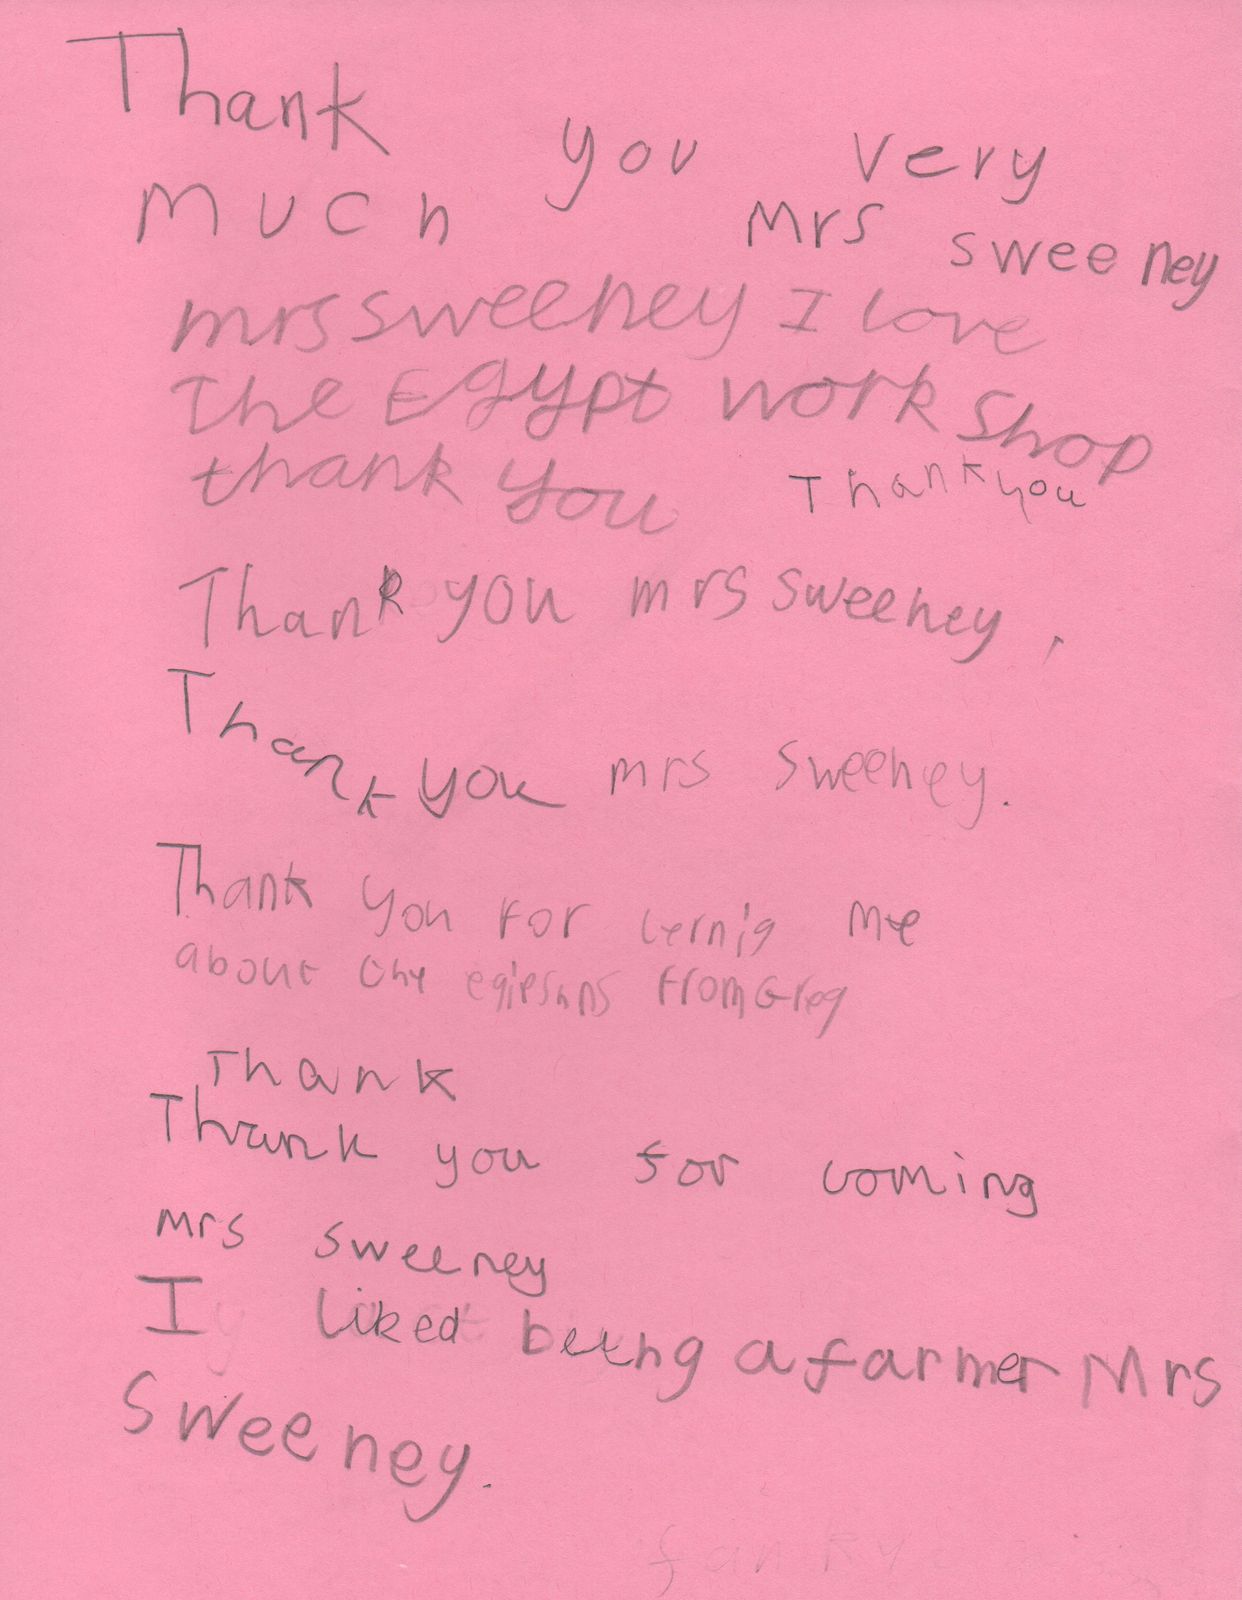 Thank you very
much Mrs sweeney
mrs sweeney I love
The Egypt work shop
thank you Thank you
Thank you mrs sweeney,
Thank you mrs sweeney.
Thank you For lernig me
about the egipshns From Greg
Thank
Thank you for coming
mrs sweeney
I liked being a farmer Mrs
Sweeney.